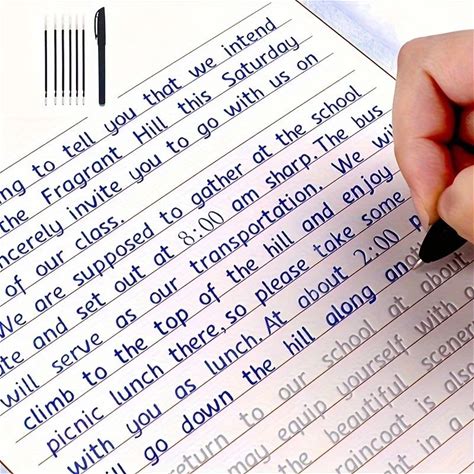 ng to tell you that we intend
the Fragrant Hill this Saturday
ncerely invite you to go with us on
of our class.
We are supposed to gather at the school
te and set out at 8:00 am sharp. The bus
will serve as our transportation. We wil
climb to the top of the hill and enjoy
picnic lunch there, so please take some
with you as lunch. At about 2:00 p
ll go down the hill along an
return to our school at about
may equip yourself with a
the beautiful scene
raincoat is als
t in a